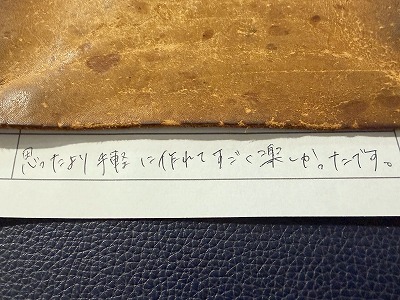 思ったより手軽に作れてすごく楽しかったです。